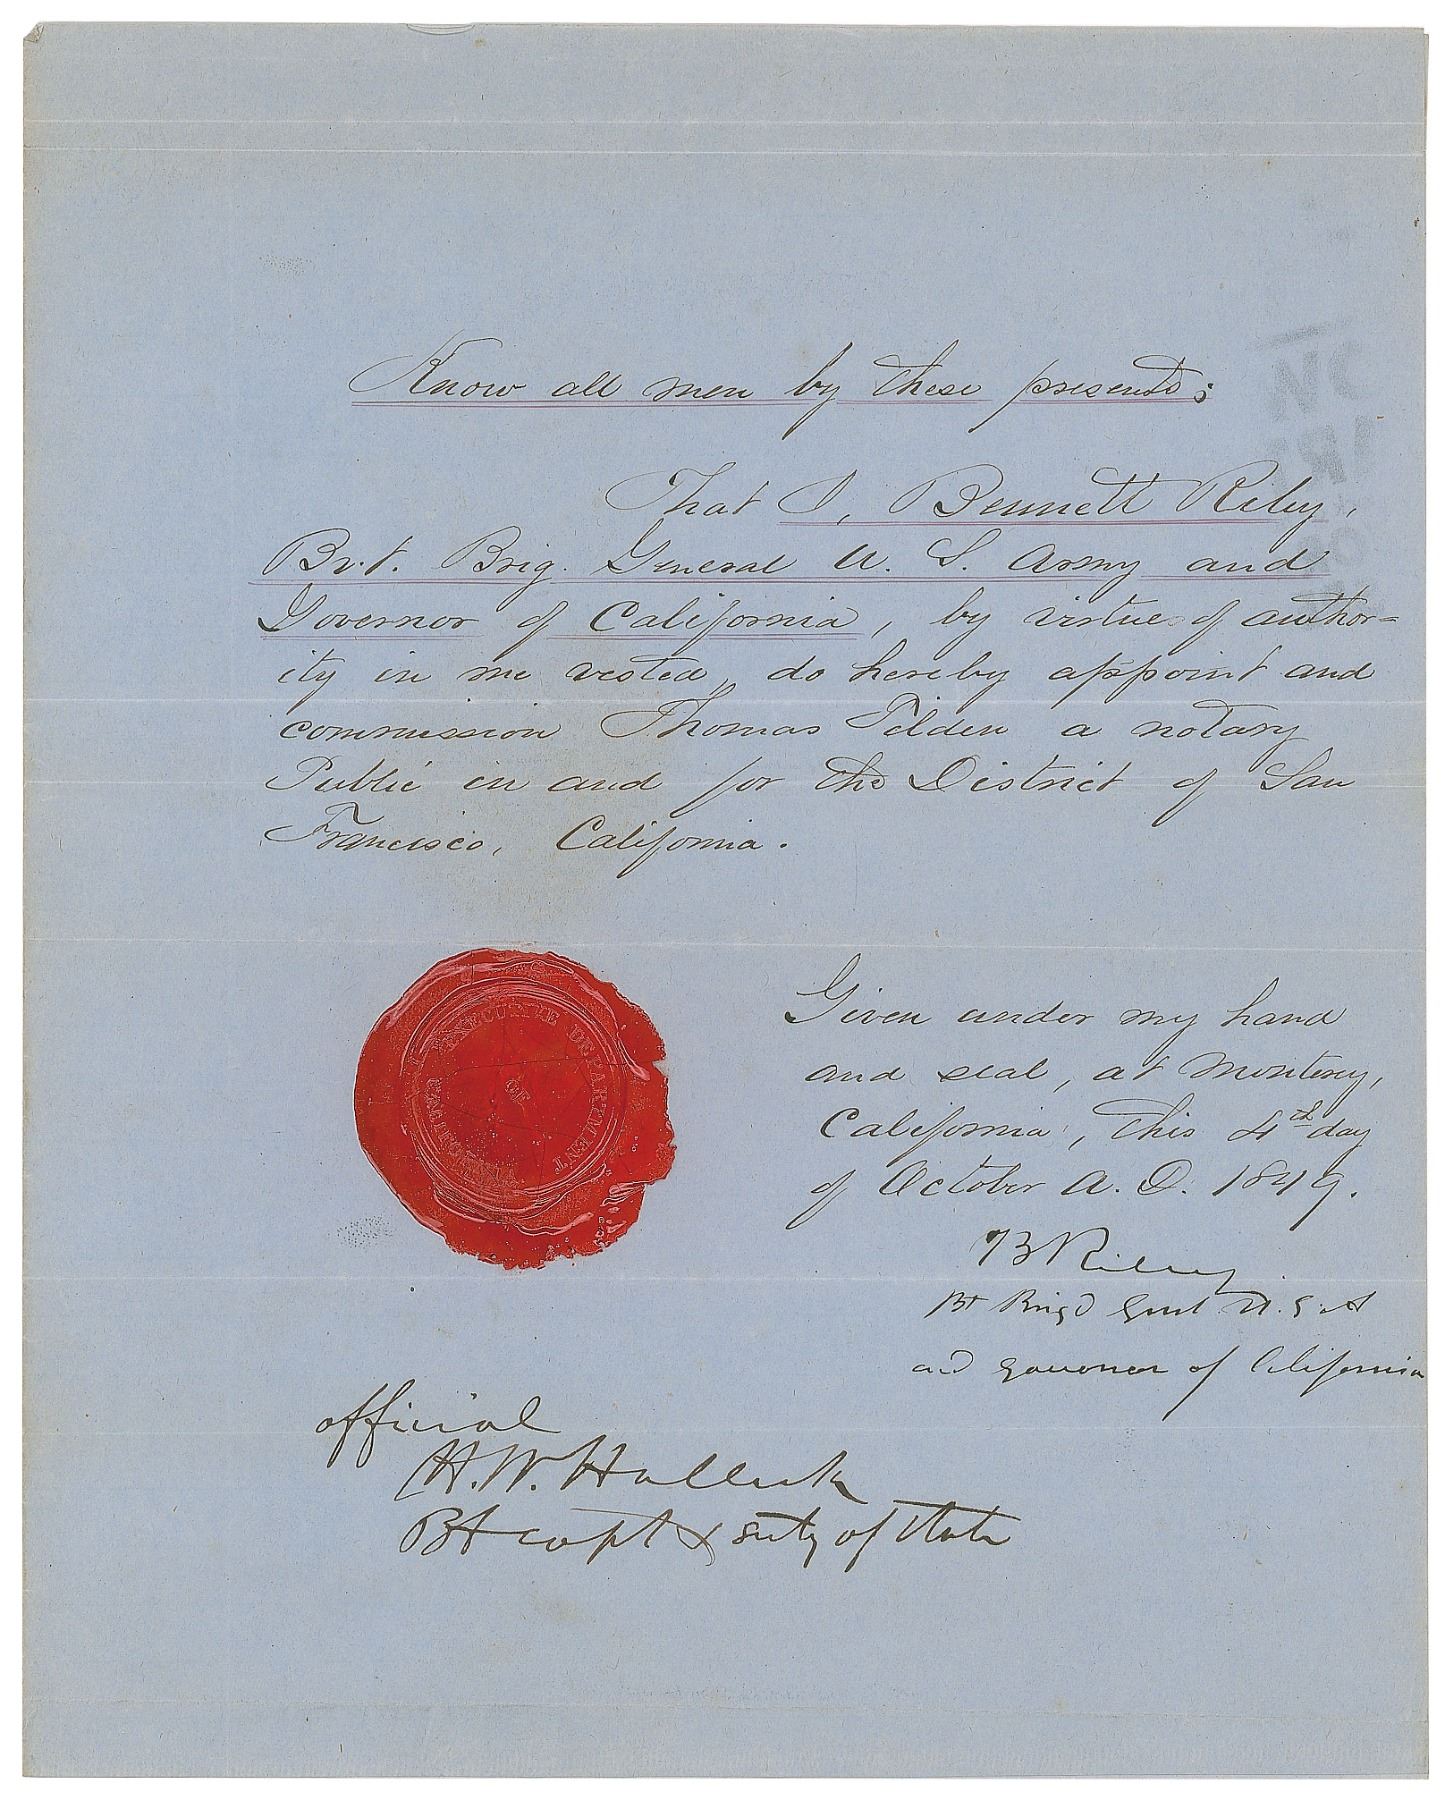 Know all men by these presents;
That I, Bennett Riley,
Bv.t. Brig. General U. S. Army and
Governor of California, by virtue of author=
ity in me vested, do hereby appoint and
commission Thomas Tilden a notary
Public in and for the District of San
Francisco, California.
EXECUTIVE DEPARTMENT
OF
CALIFORNIA
Given under my hand
and seal, at Monterey,
California, this 4th day
of October A. D. 1849.
B Riley
Bt Brigd Genl U. S. A
and Governor of California
official
H. W. Halleck
Bt capt & secty of State